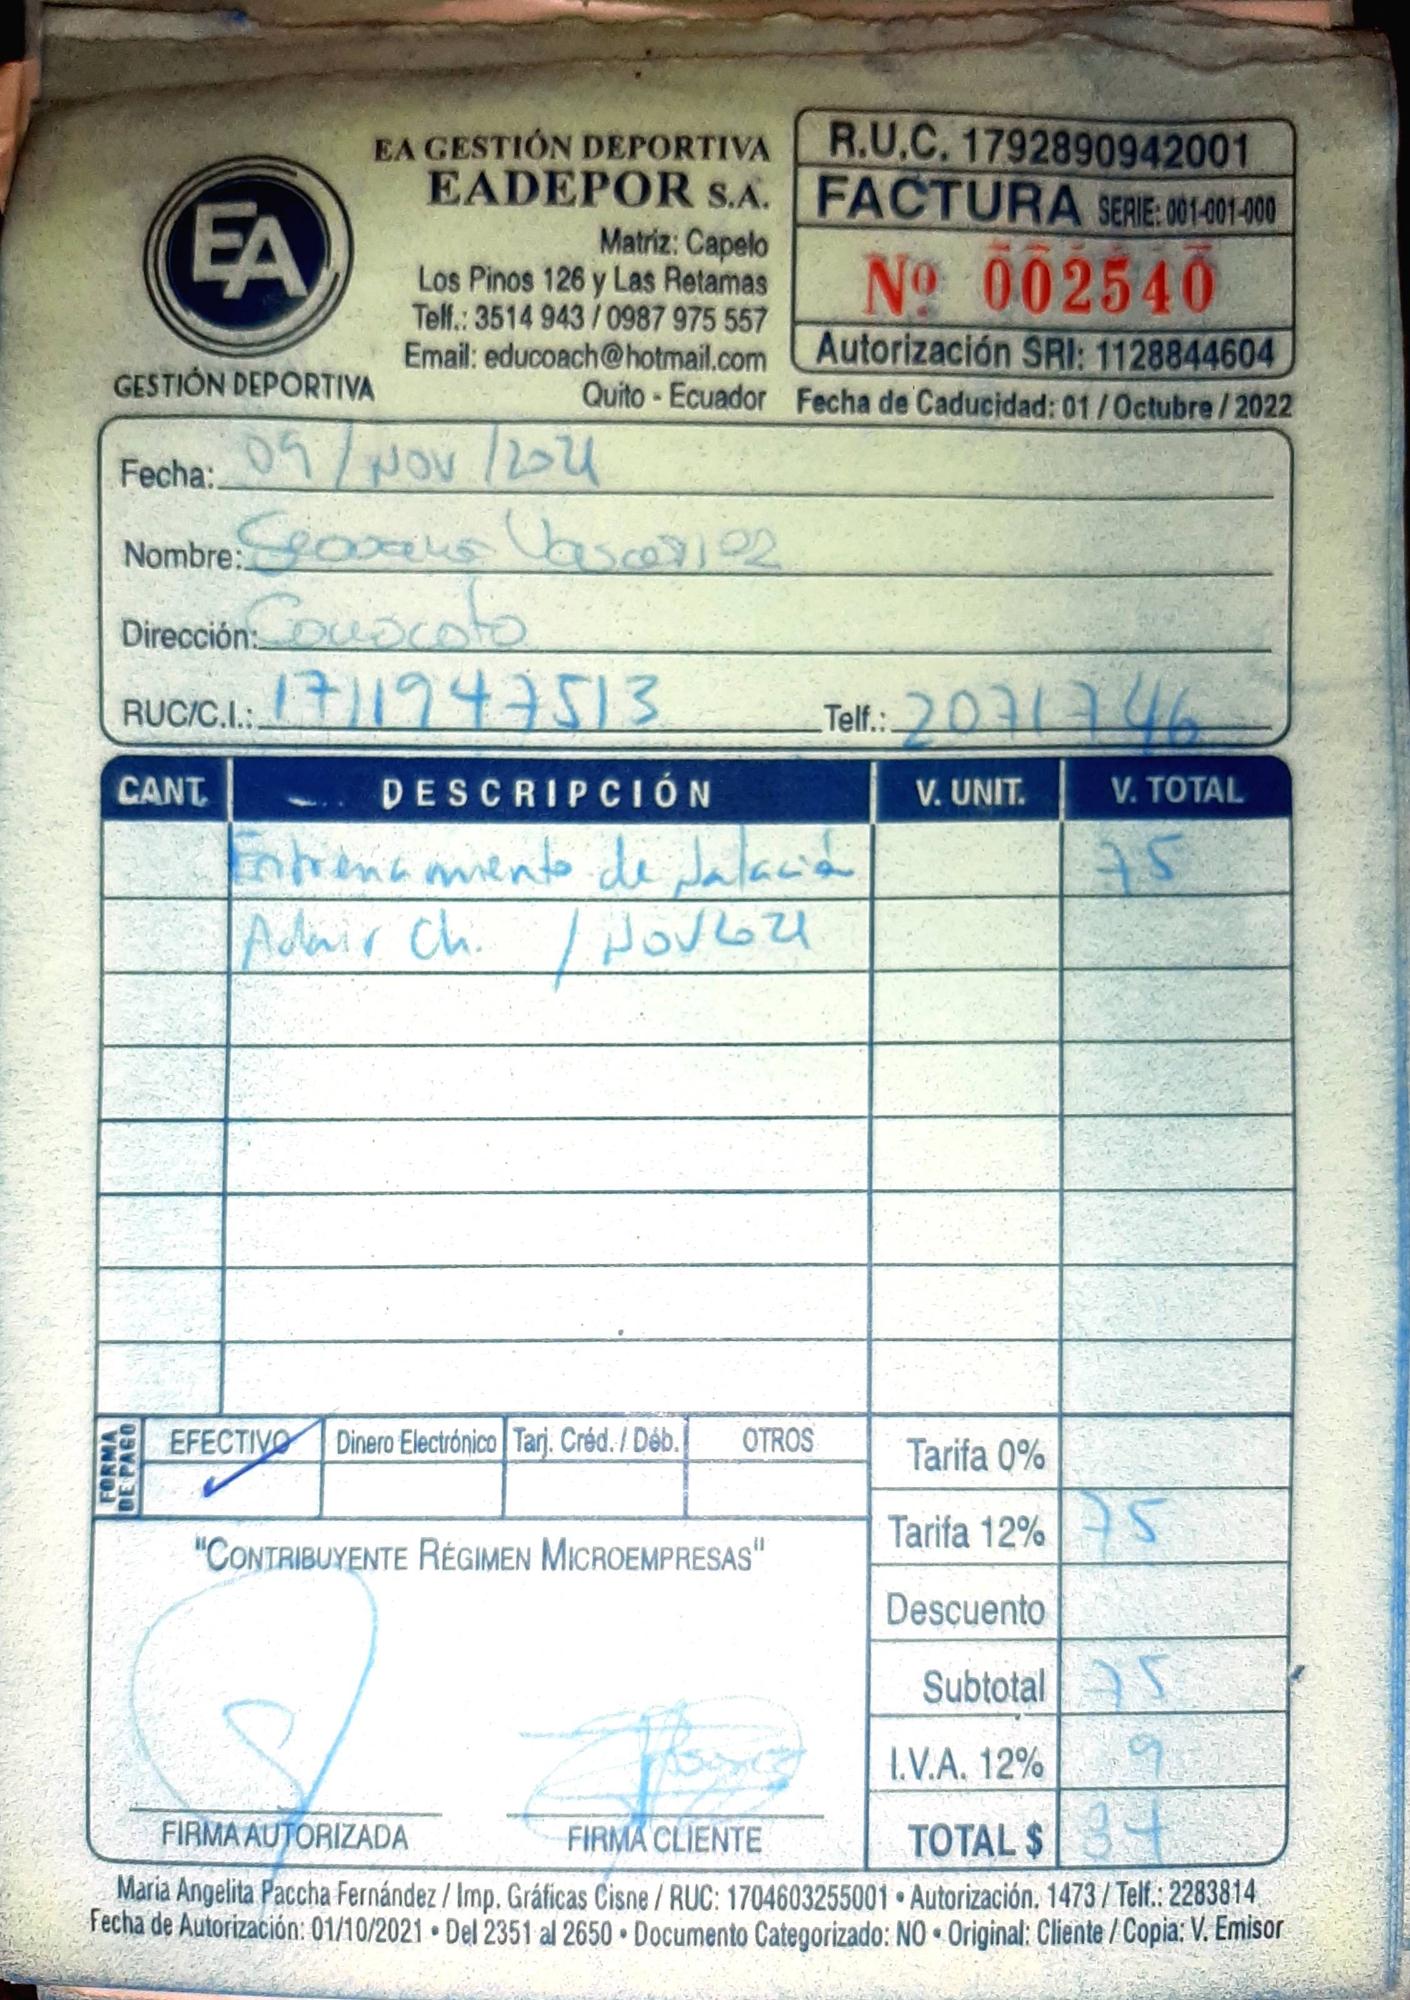 EA GESTIÓN DEPORTIVA
EADEPOR S.A.
Matriz: Capelo
Los Pinos 126 y Las Retamas
Telf.: 3514 943 / 0987 975 557
Email: educoach@hotmail.com
Quito - Ecuador
EA
GESTIÓN DEPORTIVA
R.U.C. 1792890942001
FACTURA SERIE: 001-001-000
Nº 002540
Autorización SRI: 1128844604
Fecha de Caducidad: 01 / Octubre / 2022
Fecha: 09 / NOV / 2021
Nombre:
Dirección: Conocoto
RUC/C.I.: 1711947513 Telf.: 2071746
CANT. DESCRIPCIÓN V. UNIT. V. TOTAL
Entrenamiento de Natación 75
Adair Ch. / NOV/2021
FORMA DE PAGO
EFECTIVO Dinero Electrónico Tarj. Créd. / Déb. OTROS
Tarifa 0%
Tarifa 12% 75
Descuento
Subtotal 75
I.V.A. 12% 9
TOTAL $
"CONTRIBUYENTE RÉGIMEN MICROEMPRESAS"
FIRMA AUTORIZADA FIRMA CLIENTE
Maria Angelita Paccha Fernández / Imp. Gráficas Cisne / RUC: 1704603255001 • Autorización. 1473 / Telf.: 2283814
Fecha de Autorización: 01/10/2021 • Del 2351 al 2650 • Documento Categorizado: NO • Original: Cliente / Copia: V. Emisor